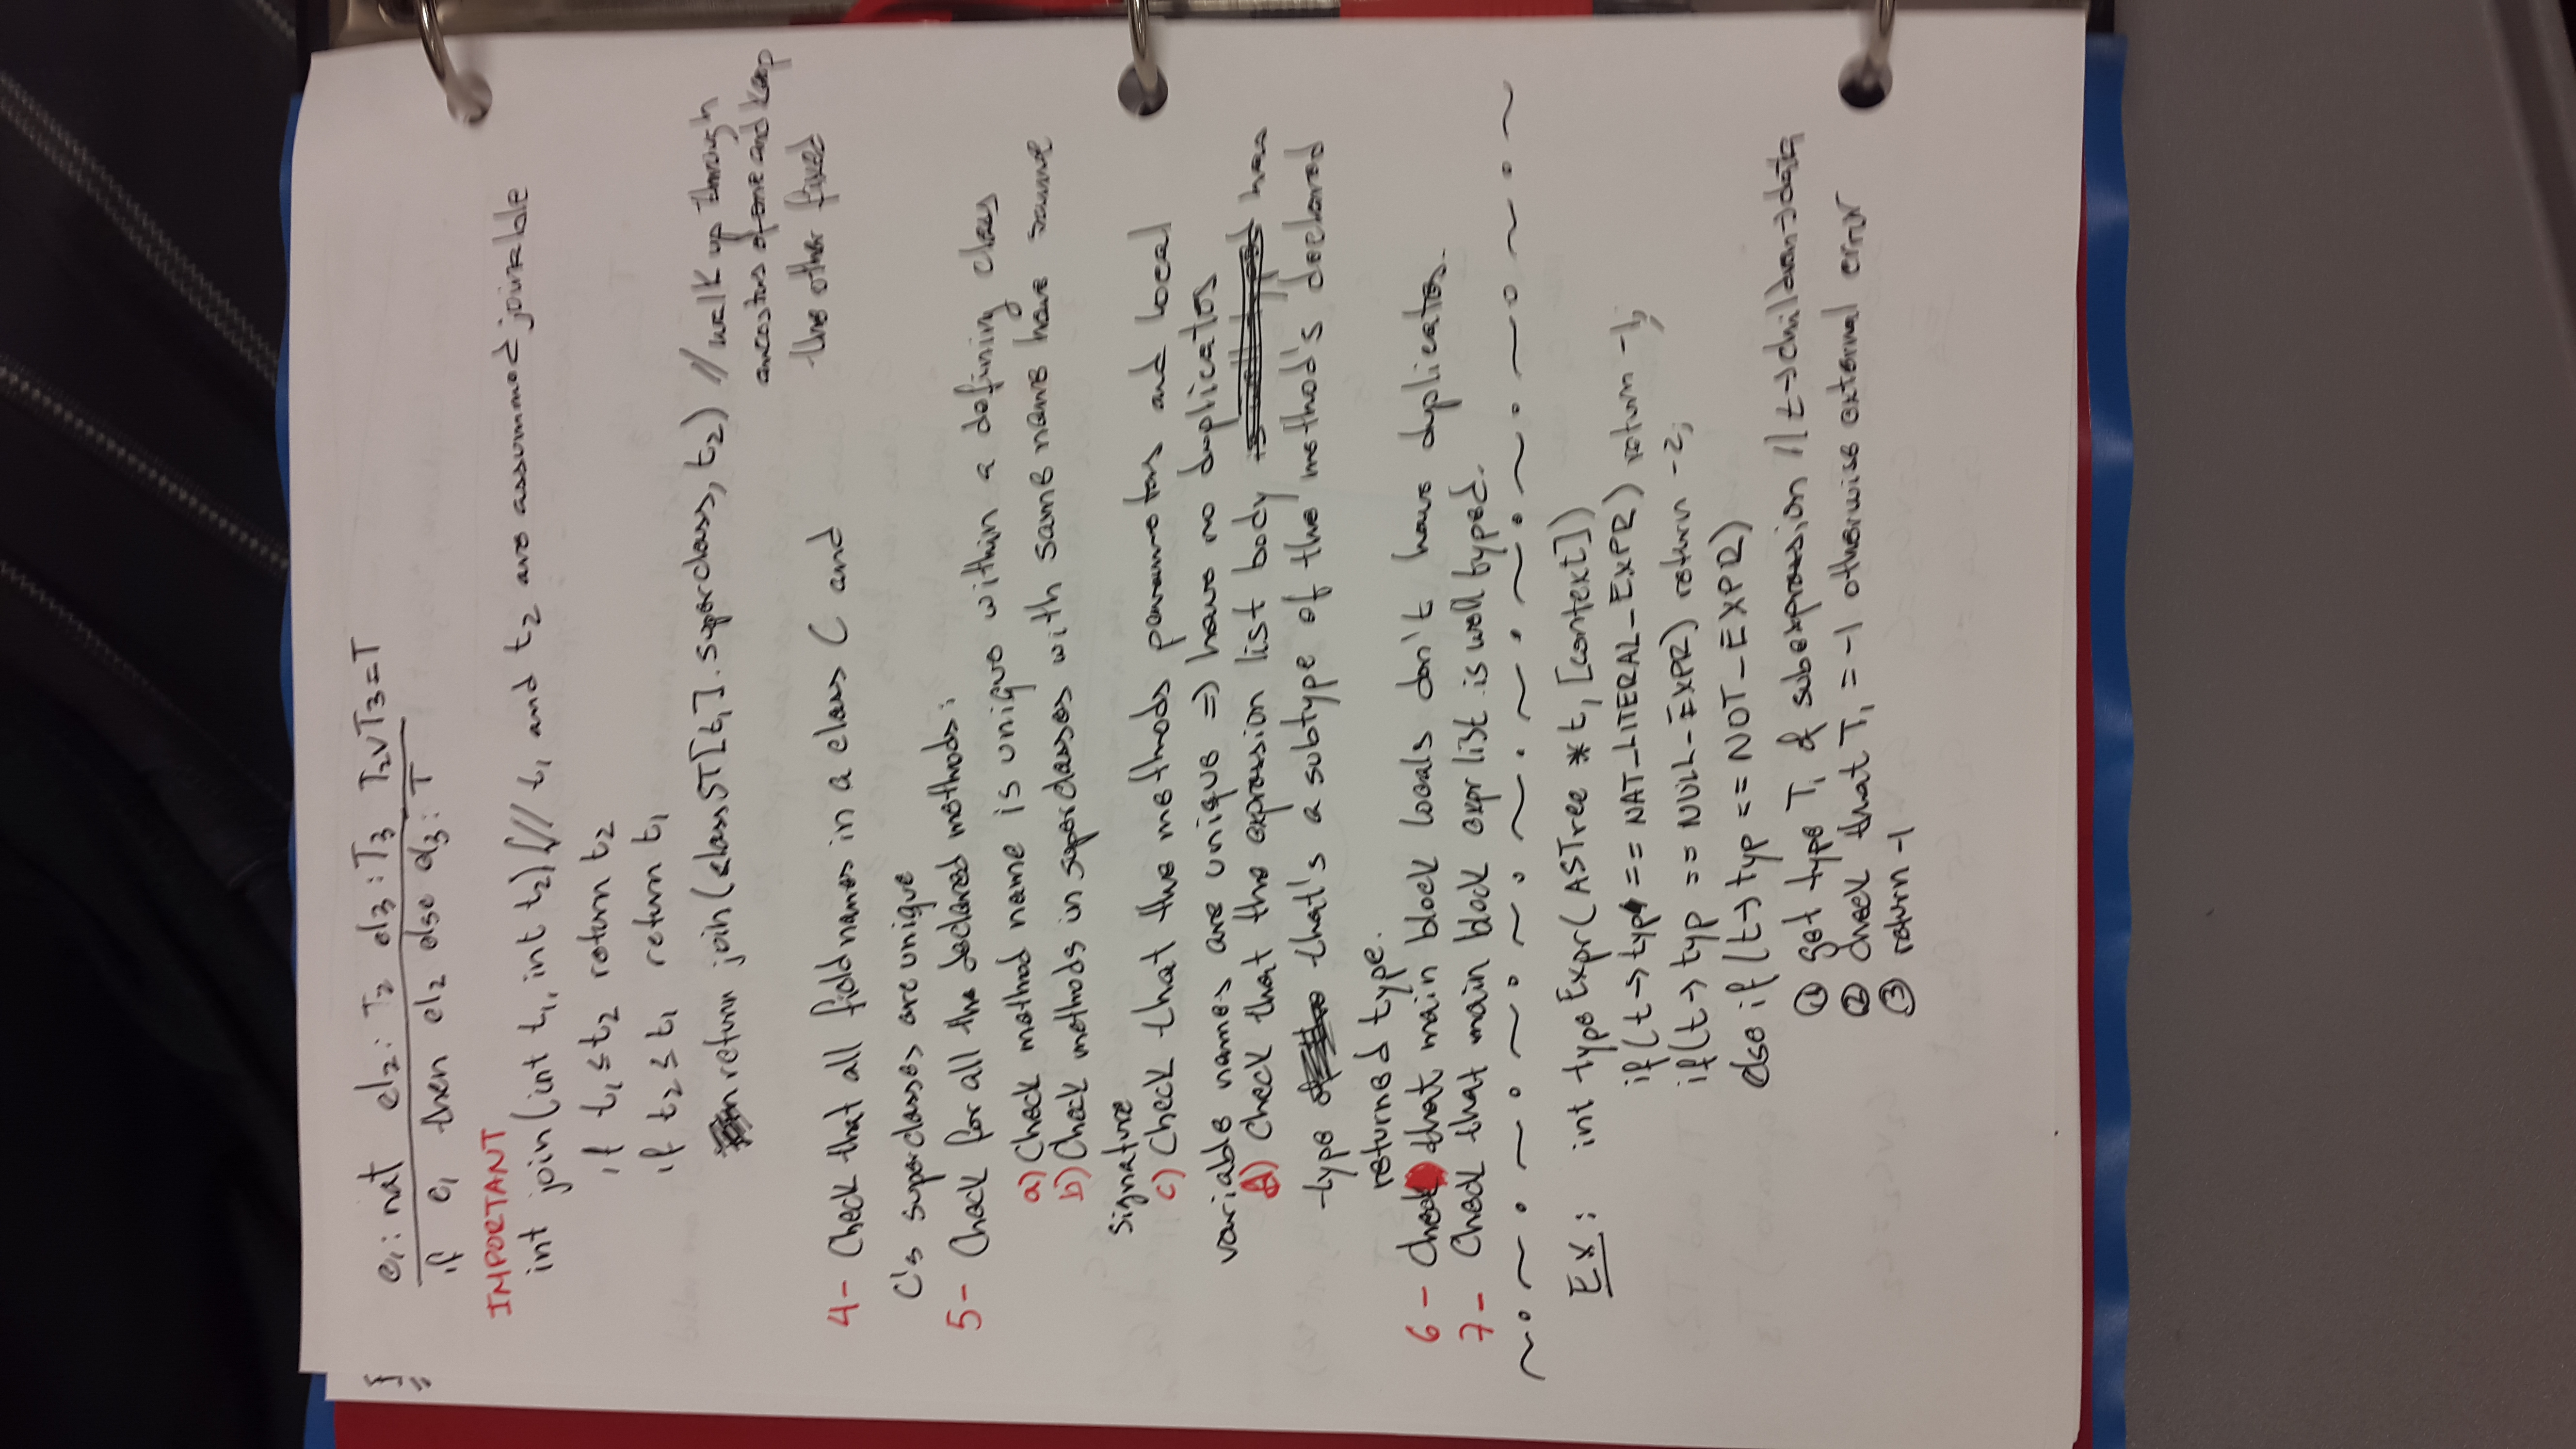 e₁: nat el₂: T₂ el₃: T₃ T₂∨T₃=T
if e₁ then el₂ else el₃: T
IMPORTANT
int join(int t₁, int t₂){// t₁ and t₂ are assummed joinable
if t₁ ≤ t₂ return t₂
if t₂ ≤ t₁ return t₁
return join(classST[t₁].superclass, t₂) // walk up through
ancestors of one and keep
the other fixed
4- Check that all field names in a class C and
C's superclasses are unique
5- Check for all the declared methods:
a) Check method name is unique within a defining class
b) Check methods in superclasses with same name have same
signature
c) Check that the methods parameters and local
variable names are unique => have no duplicates
d) Check that the expression list body has
type that's a subtype of the method's declared
returned type.
6- Check that main block locals don't have duplicates.
7- Check that main block expr list is well typed.
EX: int typeExpr(ASTree *t, [context])
if(t->typ == NAT_LITERAL_EXPR) return -1;
if(t->typ == NULL_EXPR) return -2;
else if(t->typ == NOT_EXPR)
① get type T₁ of subexpression // t->children->data
② check that T₁ = -1 otherwise external error
③ return -1